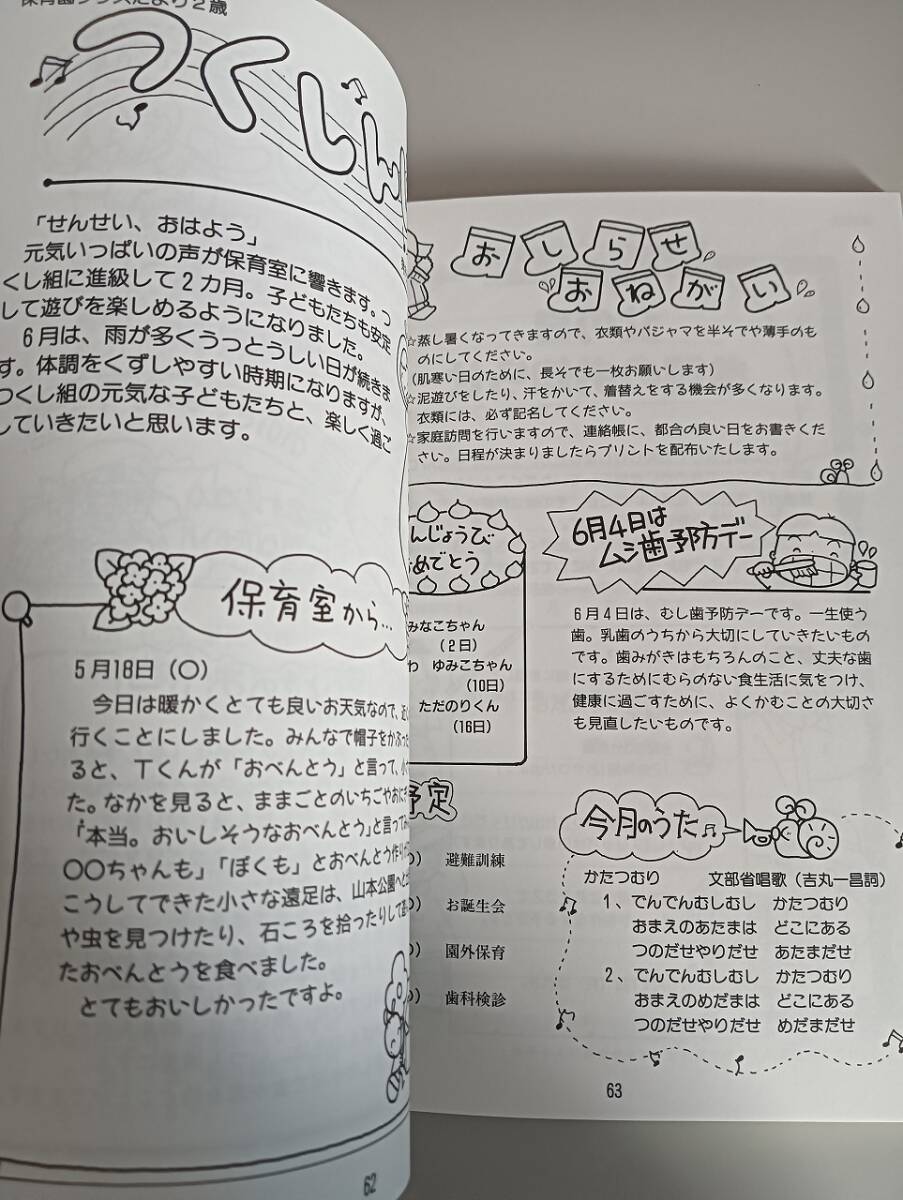 保育園クラスだより２歳
つくしん
「せんせい、おはよう」
元気いっぱいの声が保育室に響きます。つ
くし組に進級して２カ月。子どもたちも安定
して遊びを楽しめるようになりました。
６月は、雨が多くうっとうしい日が続きま
す。体調をくずしやすい時期になりますが、
つくし組の元気な子どもたちと、楽しく過ご
していきたいと思います。
保育室から…
５月18日（○）
今日は暖かくとても良いお天気なので、近く
行くことにしました。みんなで帽子をかぶった
ると、Ｔくんが「おべんとう」と言って、小さ
た。なかを見ると、ままごとのいちごやおに
「本当。おいしそうなおべんとう」と言って
○○ちゃんも」「ぼくも」とおべんとう作り
こうしてできた小さな遠足は、山本公園へと
や虫を見つけたり、石ころを拾ったりして
たおべんとうを食べました。
とてもおいしかったですよ。
62
おしらせ
おねがい
☆蒸し暑くなってきますので、衣類やパジャマを半そでや薄手のも
のにしてください。
（肌寒い日のために、長そでも一枚お願いします）
☆泥遊びをしたり、汗をかいて、着替えをする機会が多くなります。
衣類には、必ず記名してください。
☆家庭訪問を行いますので、連絡帳に、都合の良い日をお書きくだ
さい。日程が決まりましたらプリントを配布いたします。
んじょうび
おめでとう
みなこちゃん
（２日）
わ　ゆみこちゃん
（10日）
ただのりくん
（16日）
予定
○）　避難訓練
○）　お誕生会
○）　園外保育
○）　歯科検診
６月４日は
ムシ歯予防デー
６月４日は、むし歯予防デーです。一生使う
歯。乳歯のうちから大切にしていきたいもの
です。歯みがきはもちろんのこと、丈夫な歯
にするためにむらのない食生活に気をつけ、
健康に過ごすために、よくかむことの大切さ
も見直したいものです。
今月のうた♫
かたつむり　　文部省唱歌（吉丸一昌詞）
１、でんでんむしむし　かたつむり
おまえのあたまは　どこにある
つのだせやりだせ　あたまだせ
２、でんでんむしむし　かたつむり
おまえのめだまは　どこにある
つのだせやりだせ　めだまだせ
63